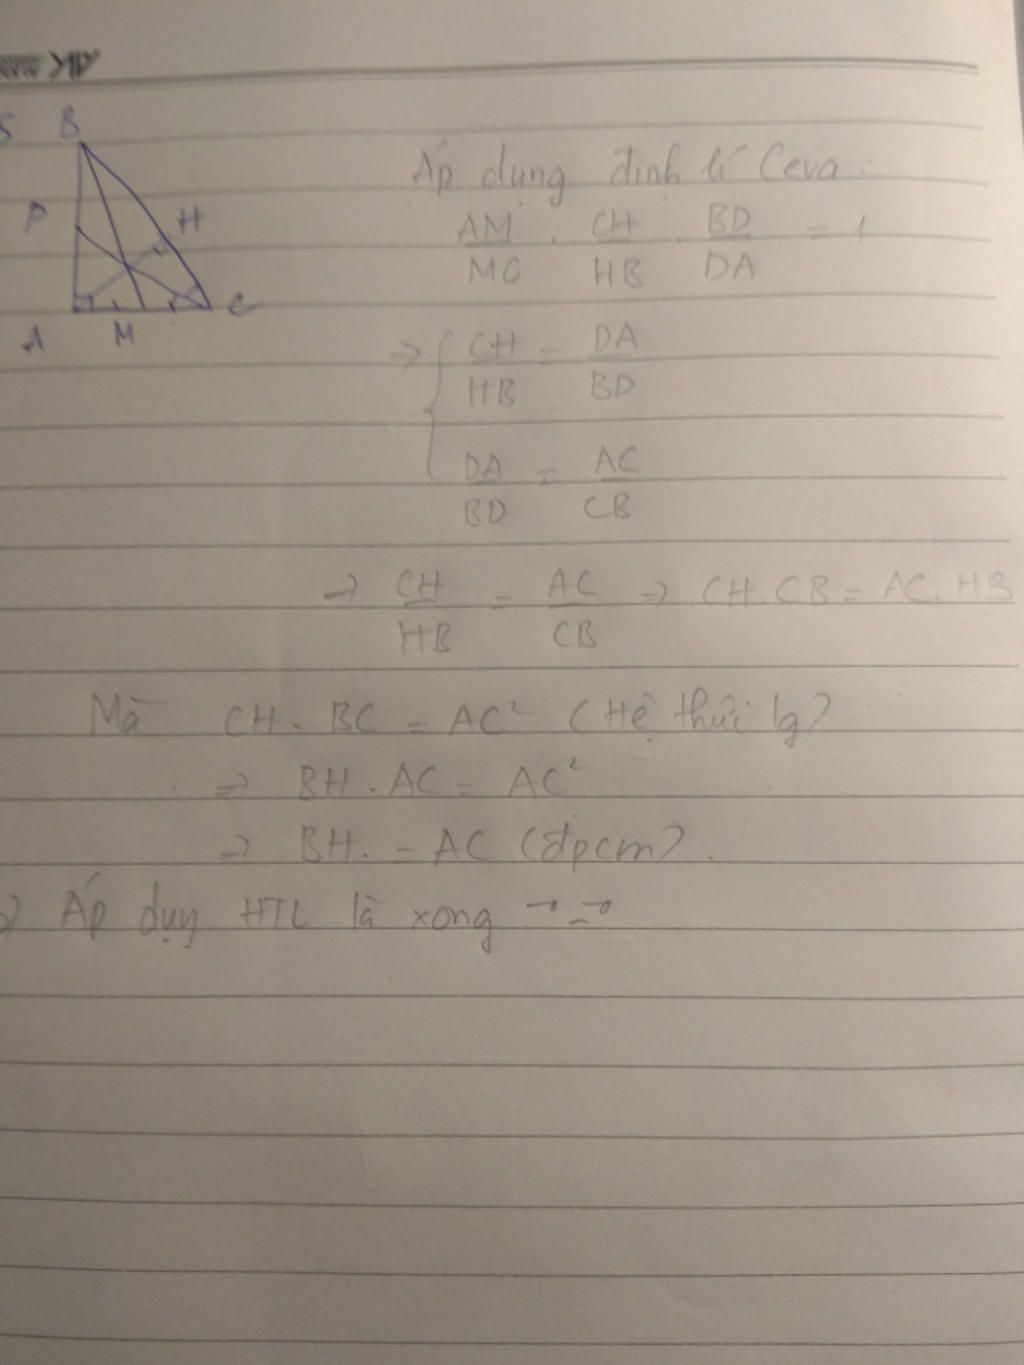 B
Áp dụng định lí Ceva:
P
H
AM/MC . CH/HB . BD/DA = 1
C
A M
=> { CH/HB = DA/BD
DA/BD = AC/CB
=> CH/HB = AC/CB => CH.CB = AC.HB
Mà CH . BC = AC² (Hệ thức lg)
=> BH . AC = AC²
=> BH. = AC (đpcm).
) Áp dụg HTL là xong